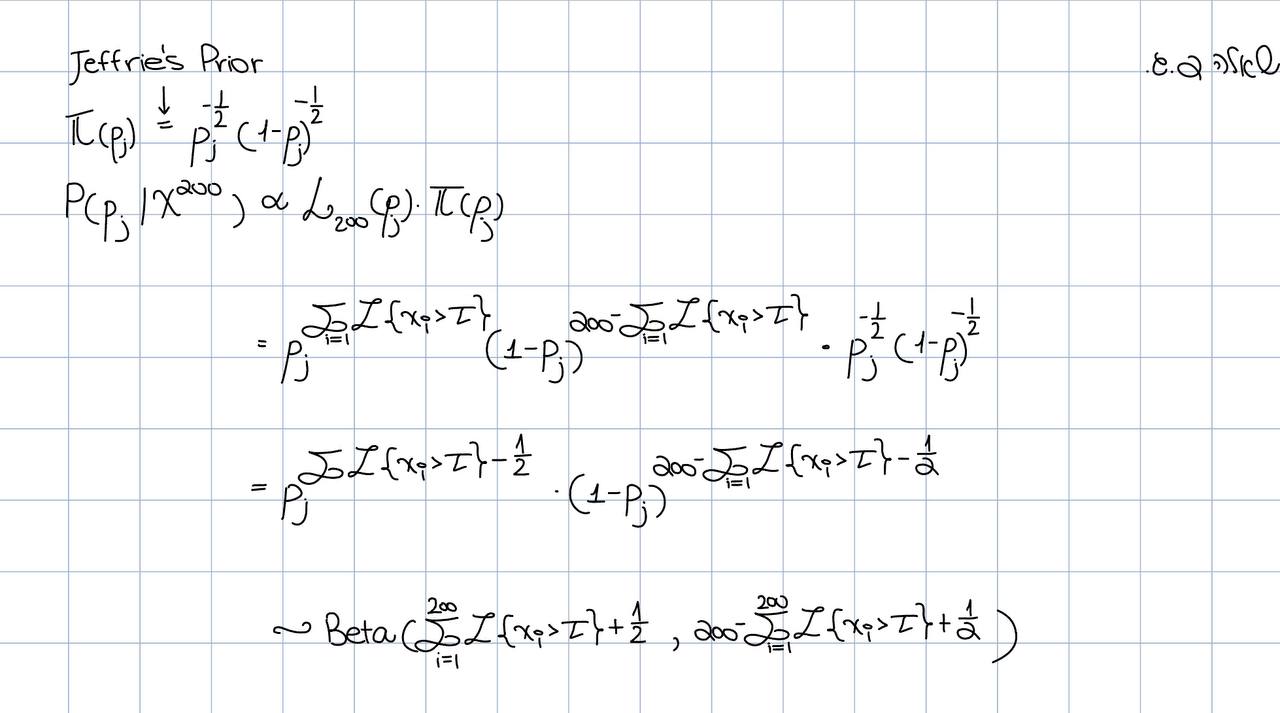 Jeffrie's Prior
שאלה 2.
↓
π(p_j) = p_j^{-1/2} (1-p_j)^{-1/2}
P(p_j | X^{200}) ∝ L_{200}(p_j) · π(p_j)
= p_j^{∑_{i=1} I{x_i>τ}} (1-p_j)^{200-∑_{i=1} I{x_i>τ}} · p_j^{-1/2} (1-p_j)^{-1/2}
= p_j^{∑ I{x_i>τ}-1/2} · (1-p_j)^{200-∑_{i=1} I{x_i>τ}-1/2}
~ Beta(∑_{i=1}^{200} I{x_i>τ}+1/2 , 200-∑_{i=1}^{200} I{x_i>τ}+1/2)